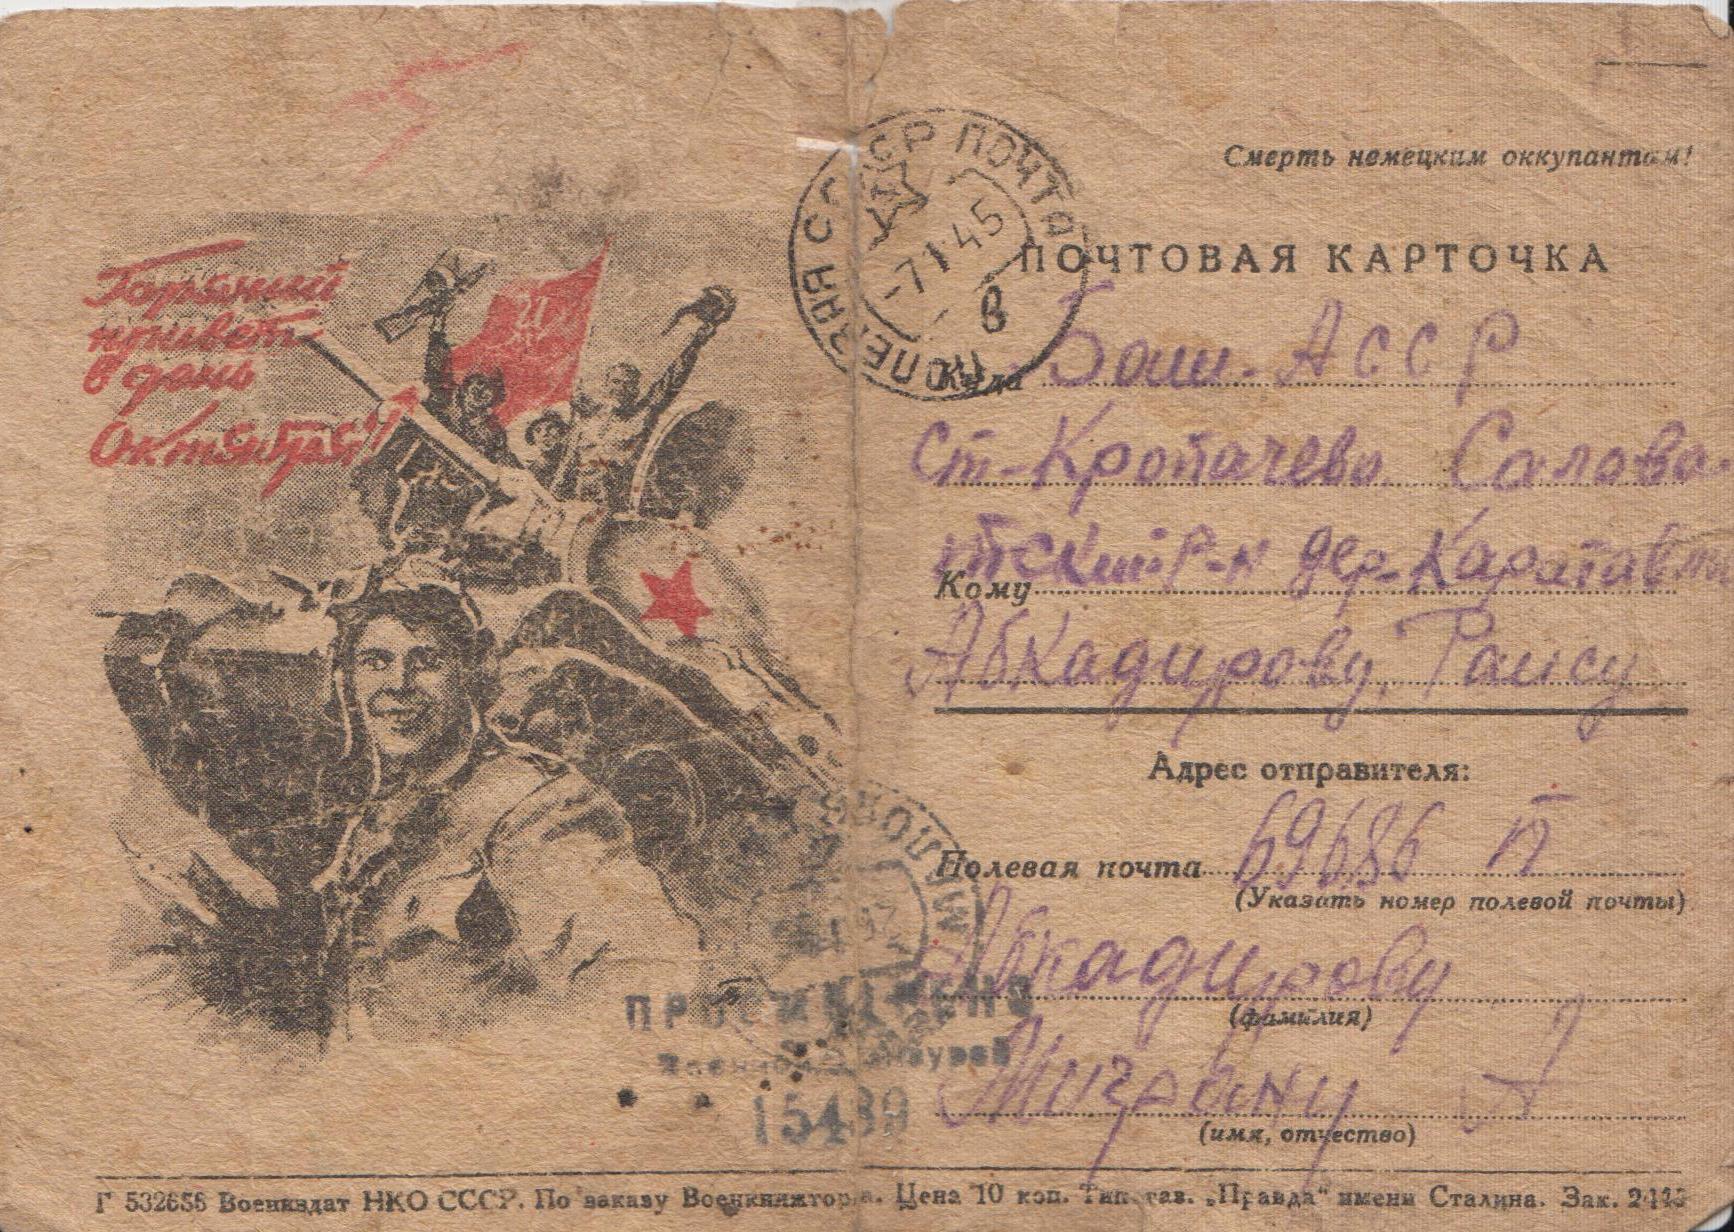 Горячий
привет
в день
Октября!
ПОЛЕВАЯ ПОЧТА СССР
-7 1 45
в
Смерть немецким оккупантам!
ПОЧТОВАЯ КАРТОЧКА
Куда Баш. АССР
Ст-Кропачево. Салова-
тский Р-н дер-Каратавлы
Кому
Абкадирову, Раису
Адрес отправителя:
Полевая почта 69686 П
(Указать номер полевой почты)
Абкадирову
(фамилия)
Миграну А
(имя, отчество)
ПРОСМОТРЕНО
Военной Цензурой
15439
Г 532656 Воениздат НКО СССР. По заказу Военкнижторга. Цена 10 коп. Тип. газ. „Правда“ имени Сталина. Зак.